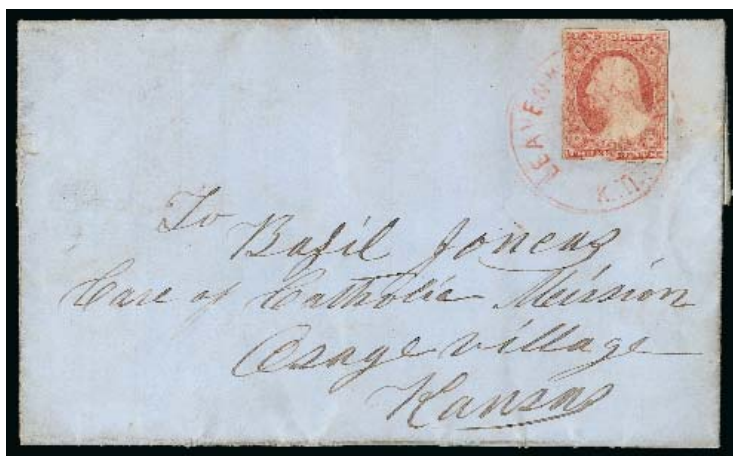 LEAVENW
K.T.
To
Basil Joneas
Care of Catholic Meission
Osage village
Kansas